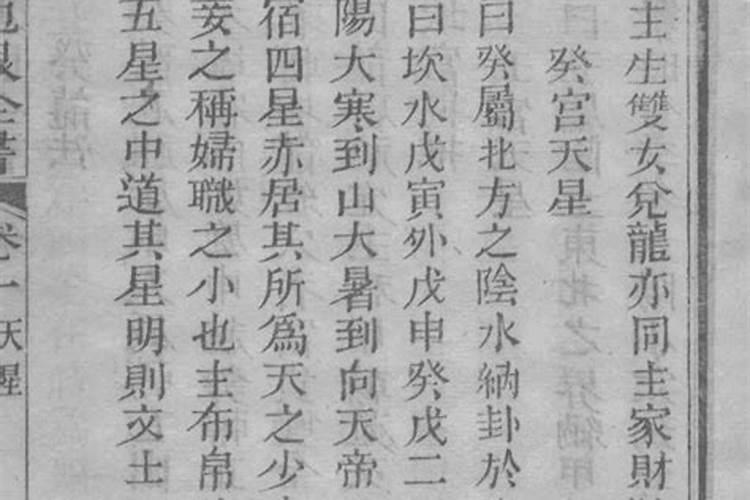 主生雙女兌龍亦同主家財
癸宮天星
曰癸屬北方之陰水納卦於
曰坎水戊寅外戊申癸戊二
陽大寒到山大暑到向天帝
宿四星赤居其所為天之少
妾之稱婦職之小也主布帛
五星之中道其星明則文士
全書
卷一 天星